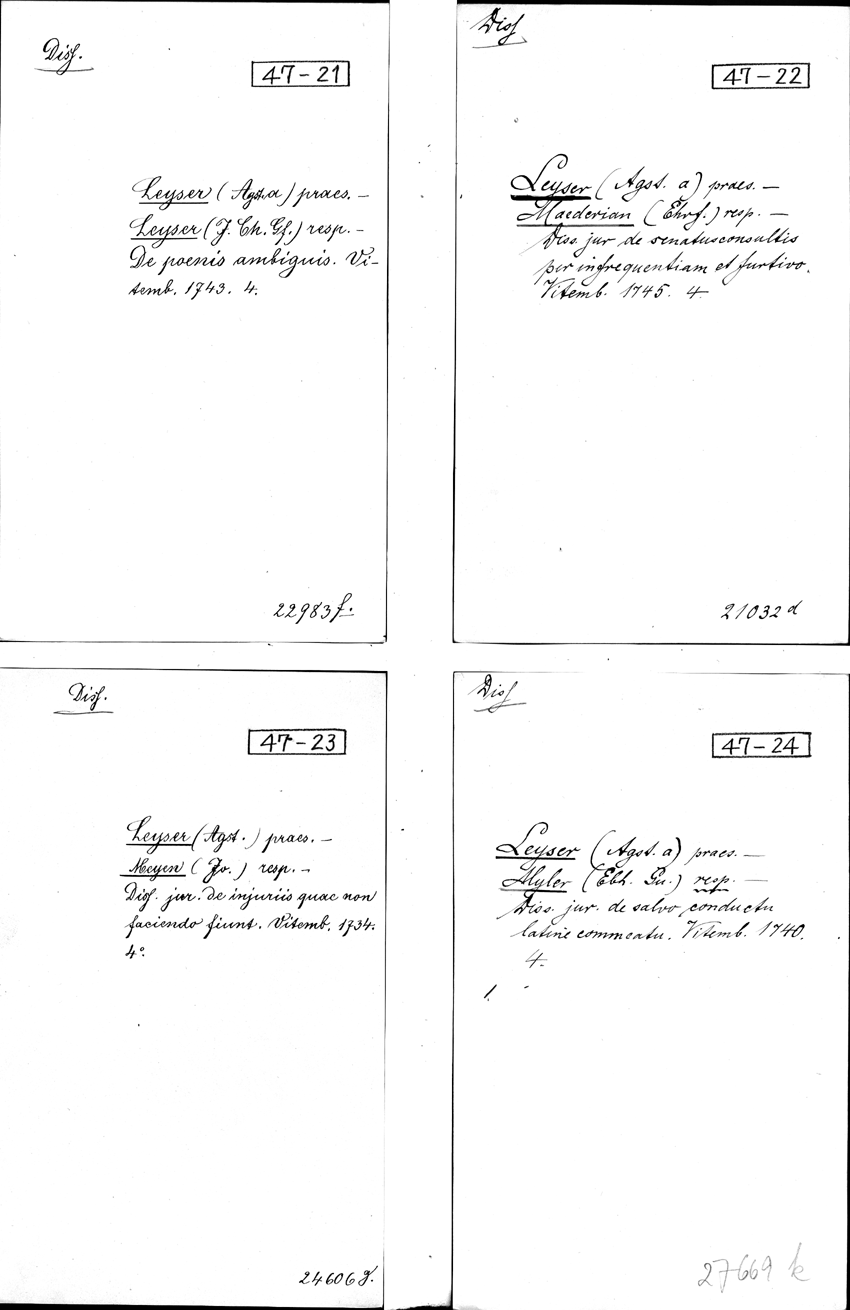 Diss.
47-21
Leyser (Agst. a) praes. —
Leyser (J. Ch. Gf.) resp. —
De poenis ambiguis. Vi-
temb. 1743. 4.
22983 f.
Diss
47-22
Leyser (Agst. a) praes. —
Maederian (Ehrf.) resp. —
Diss. jur de senatusconsultis
per infrequentiam et furtivo.
Vitemb. 1745. 4
21032 d
Diss.
47-23
Leyser (Agst.) praes. —
Meyen (Jo.) resp. —
Diss. jur. de injuriis quae non
faciendo fiunt. Vitemb. 1734.
4°.
24606 g.
Diss
47-24
Leyser (Agst. a) praes. —
Myler (Ebh. Gu.) resp. —
Diss. jur. de salvo conductu
latine commeatu. Vitemb. 1740.
4.
27669 k